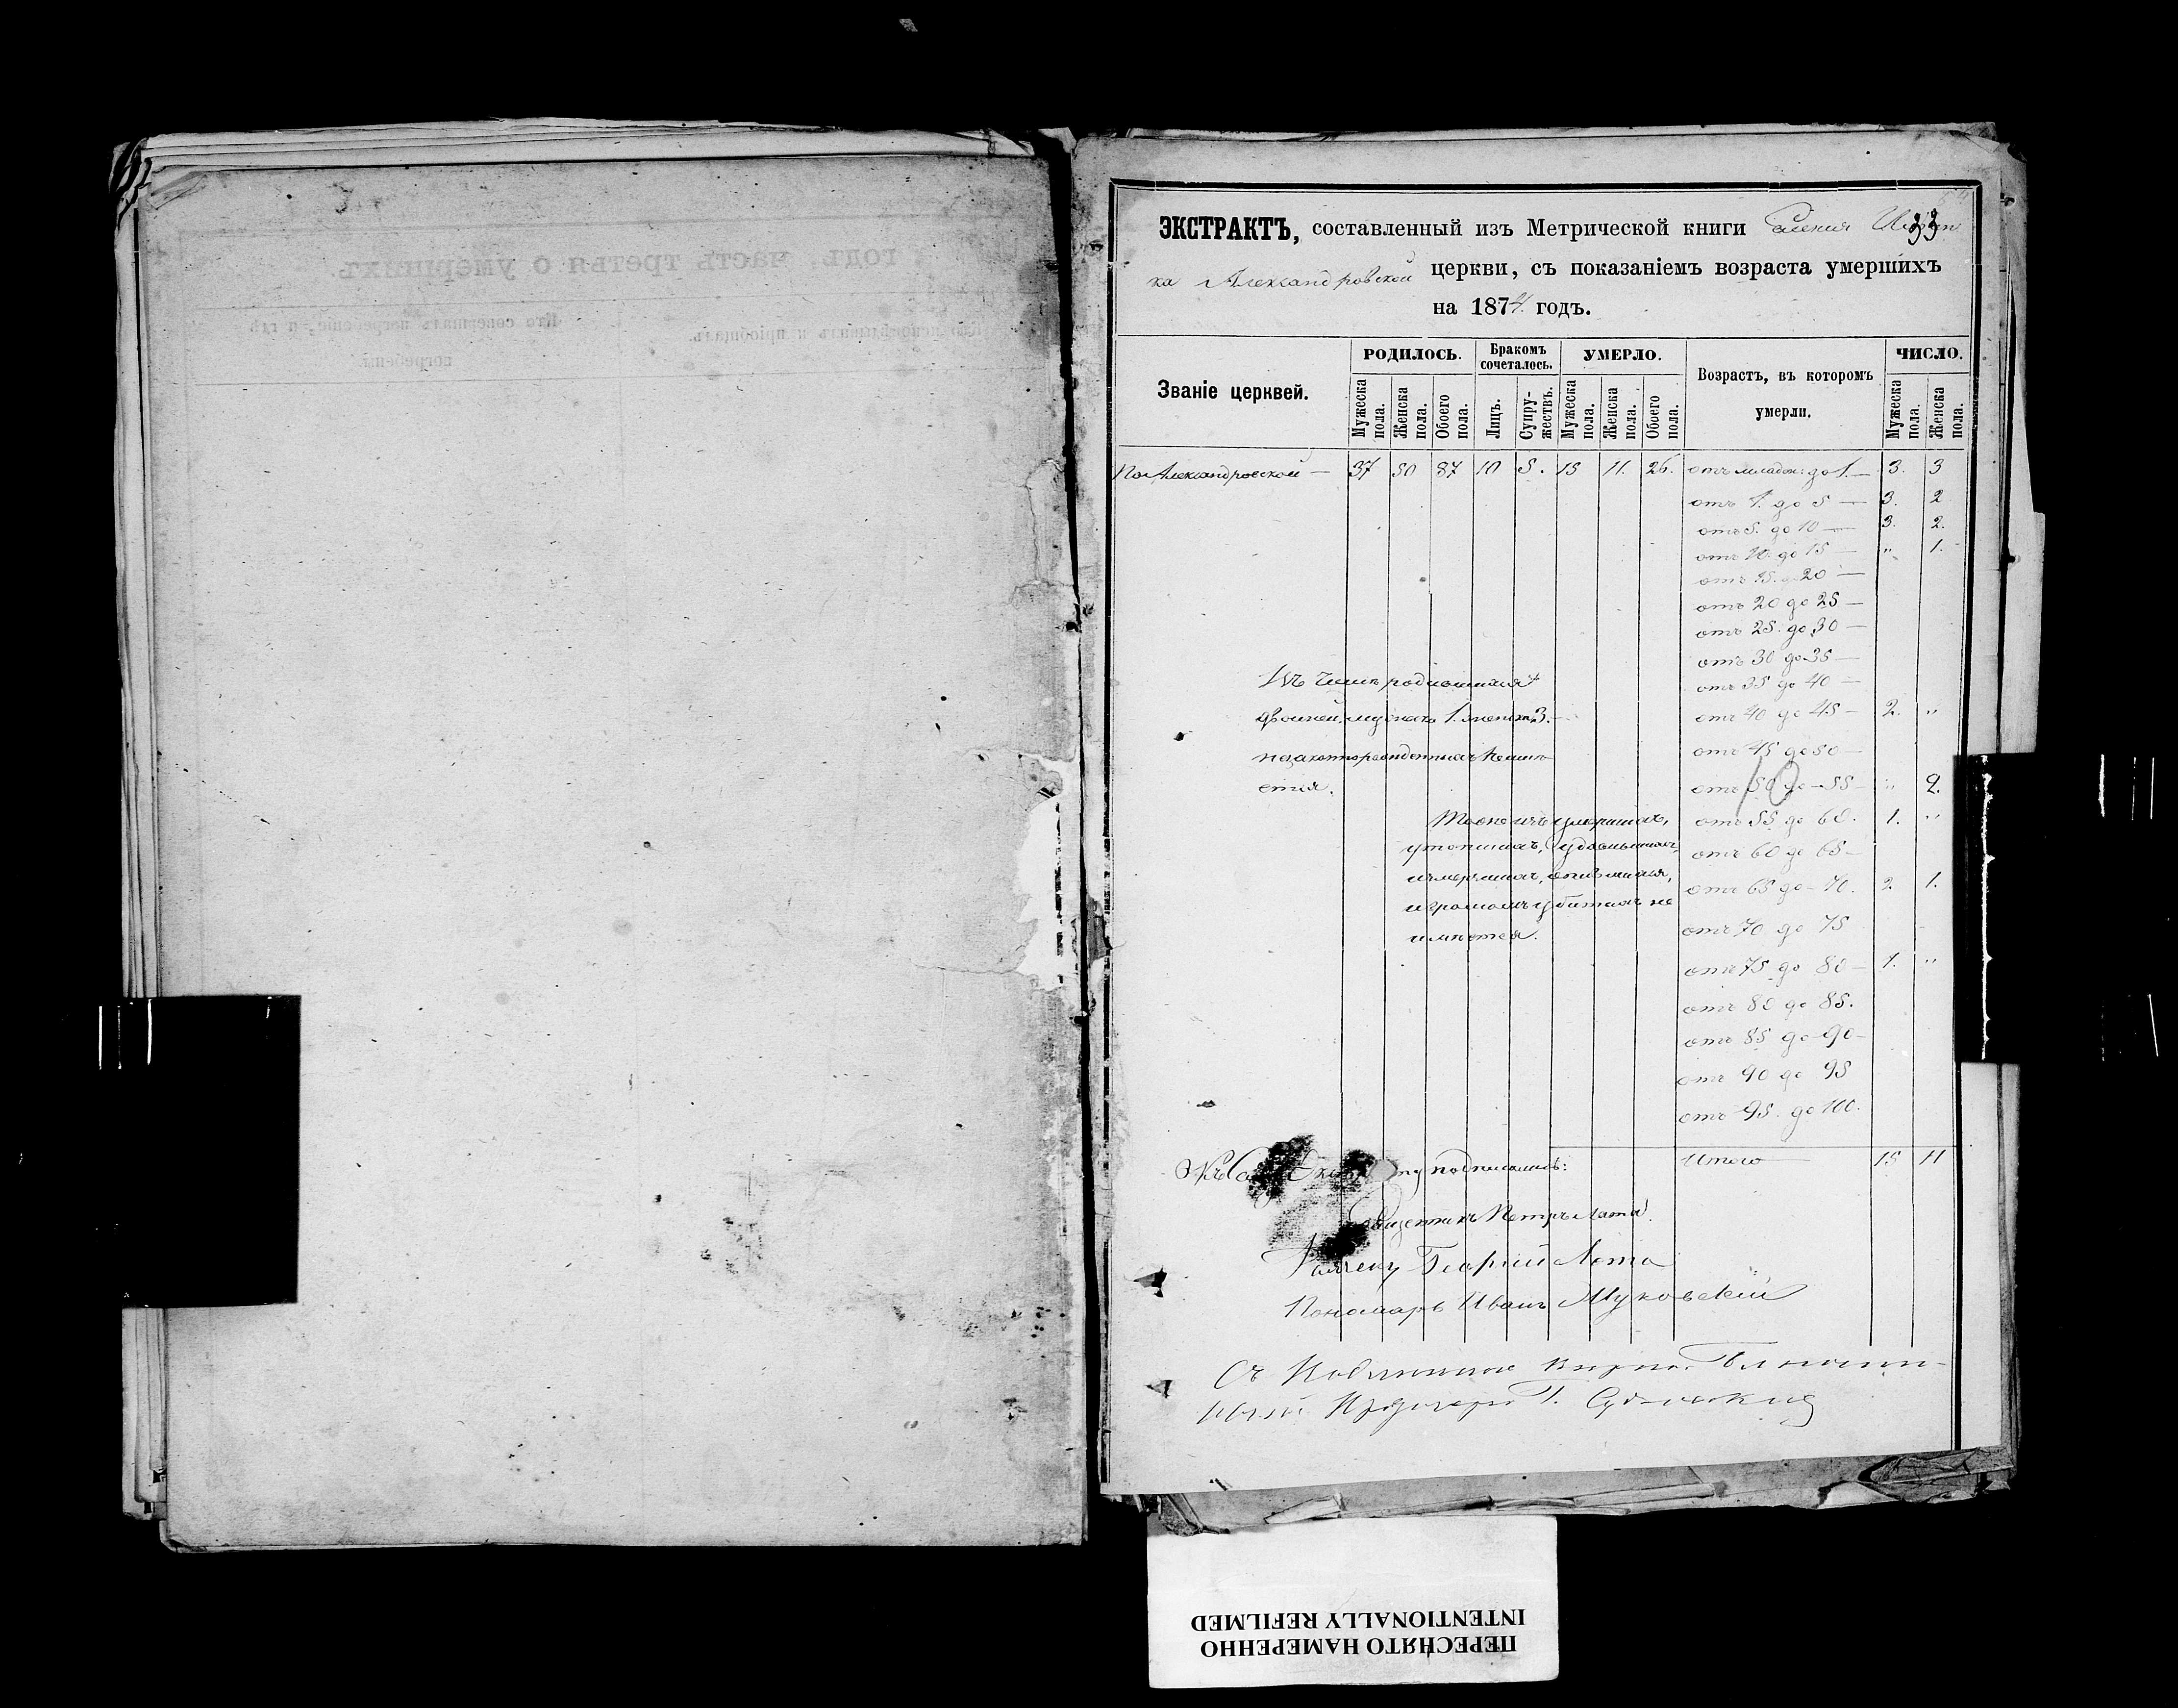 годъ, часть третья о умершихъ.
Кто совершалъ погребеніе, и гдѣ
погребены.
исповѣдывалъ и пріобщалъ.
33
ЭКСТРАКТЪ, составленный изъ Метрической книги Селенія
ка Александровской церкви, съ показаніемъ возраста умершихъ
на 1874 годъ.
Званіе церквей.
РОДИЛОСЬ.
Бракомъ сочеталось.
УМЕРЛО.
Возрастъ, въ которомъ умерли.
ЧИСЛО.
Мужеска пола.
Женска пола.
Обоего пола.
Лицъ.
Супружествъ.
Мужеска пола.
Женска пола.
Обоего пола.
Мужеска пола.
Женска пола.
По Александровской — 37 50 87 10 5. 15 11. 26. отъ младен: до 1. — 3. 3
отъ 1. до 5 — 3. 2
отъ 5. до 10 — 3. 2.
отъ 10. до 15 — " 1.
отъ 15. до 20 —
отъ 20 до 25 —
отъ 25. до 30 —
отъ 30 до 35 —
отъ 35 до 40 —
отъ 40 до 45 — 2. "
отъ 45 до 50 —
отъ 50 до 55 — " 2.
отъ 55 до 60. 1. "
отъ 60 до 65 —
отъ 65 до 70. 2. 1.
отъ 70 до 75
отъ 75 до 80 — 1. "
отъ 80 до 85.
отъ 85 до 90 —
отъ 90 до 95
отъ 95. до 100.
Итого 15 11
Изъ числа родившихся
двойней, мужска 1. женска 3. —
незаконнорожденныхъ
Тоже изъ умершихъ,
утопшихъ, удавившихся,
измершихъ, опившихся,
и громомъ убитыхъ не
имѣется.
Къ подписались:
Священникъ Петръ Лата.
Георгій Лота
Пономарь Иванъ Муковскій
Съ подлиннымъ вѣрно.
ПЕРЕСНЯТО НАМЕРЕННО
INTENTIONALLY REFILMED